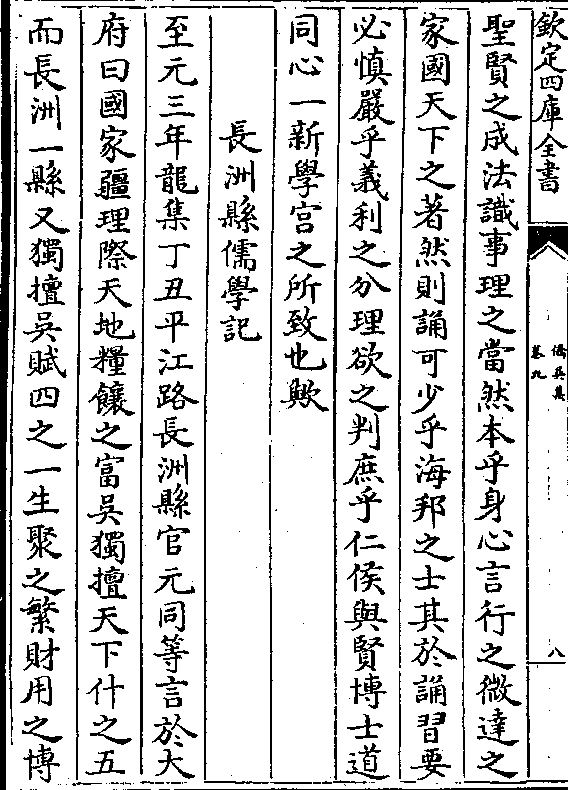 欽定四庫全書
僑吳集
卷九
八
聖賢之成法識事理之當然本乎身心言行之微達之
家國天下之著然則誦可少乎海邦之士其於誦習要
必慎嚴乎義利之分理欲之判庶乎仁侯與賢博士道
同心一新學宫之所致也歟
長洲縣儒學記
至元三年龍集丁丑平江路長洲縣官元同等言於大
府曰國家疆理際天地糧饟之富吳獨擅天下什之五
而長洲一縣又獨擅吳賦四之一生聚之繁財用之博